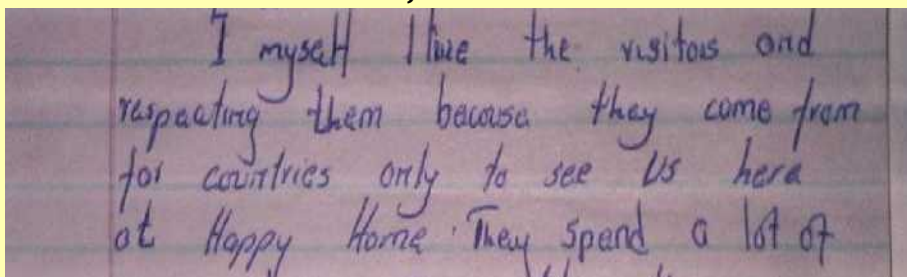 I myself like the visitors and
respecting them because they come from
far countries only to see us here
at Happy Home. They spend a lot of